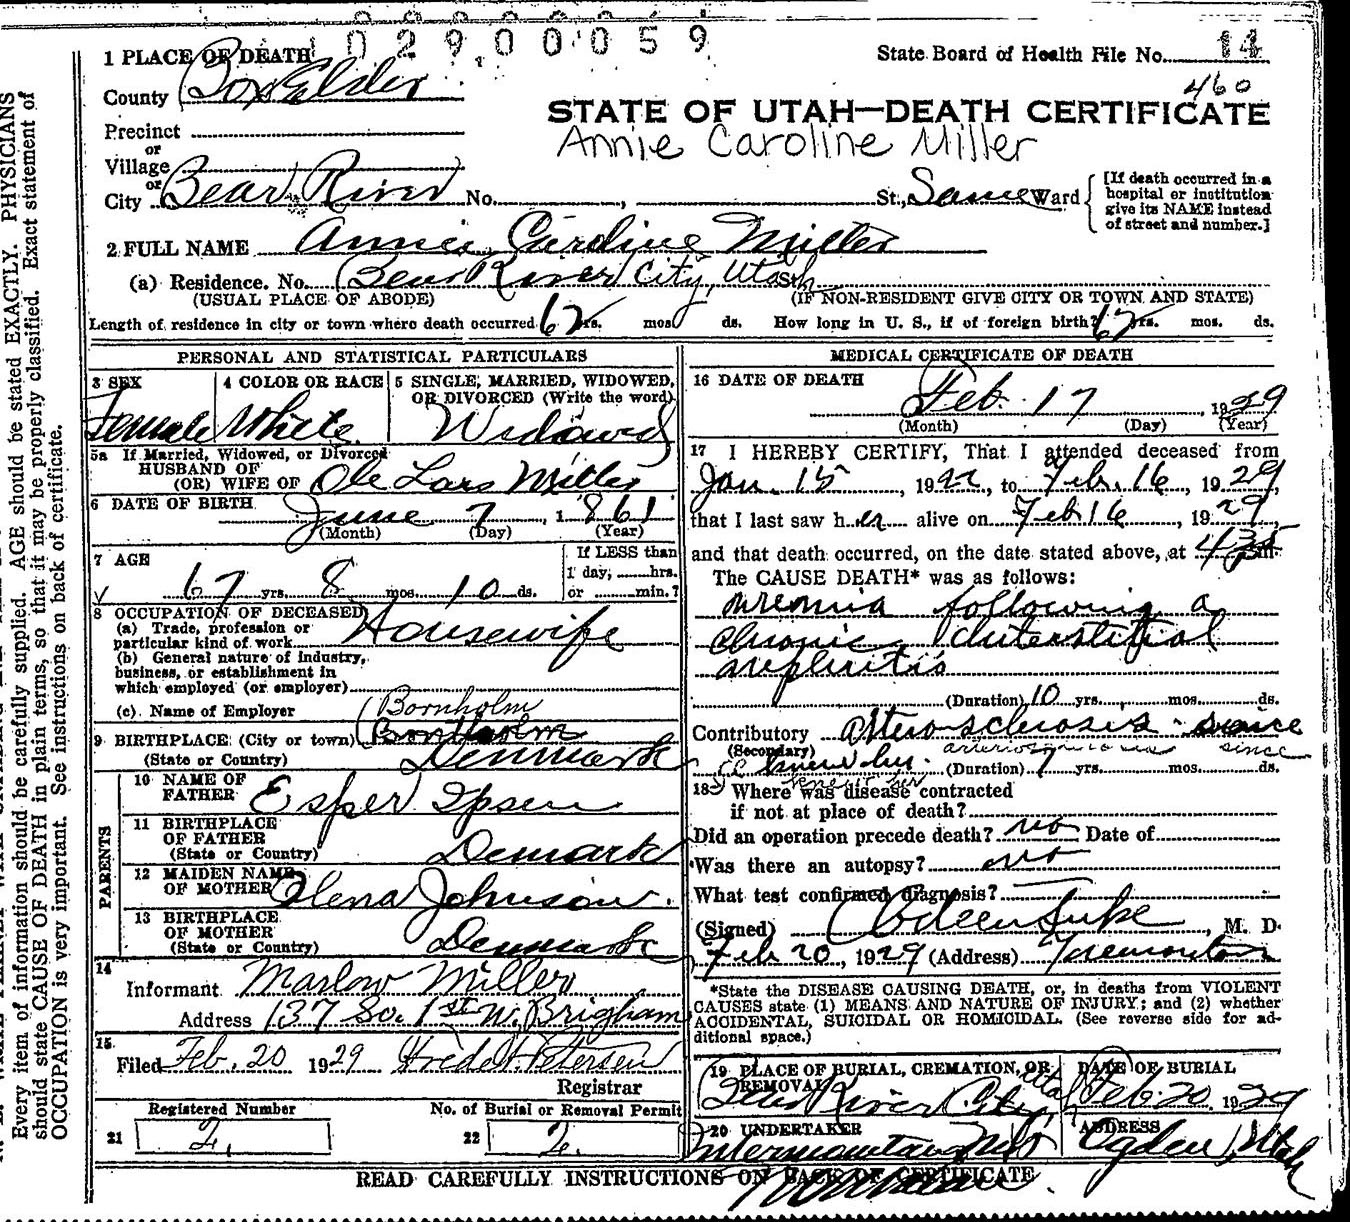 1 0 2 9 0 0 0 5 9
1 PLACE OF DEATH
State Board of Health File No. 14
County Box Elder
460
STATE OF UTAH—DEATH CERTIFICATE
Precinct
or
Village
Annie Caroline Miller
or
City Bear River No. , St., Same Ward
[If death occurred in a
hospital or institution
give its NAME instead
of street and number.]
2 FULL NAME Annie Caroline Miller
(a) Residence. No. Bear River City, Utah St.
(USUAL PLACE OF ABODE) (IF NON-RESIDENT GIVE CITY OR TOWN AND STATE)
Length of residence in city or town where death occurred 62 yrs. mos. ds. How long in U. S., if of foreign birth? 62 yrs. mos. ds.
PERSONAL AND STATISTICAL PARTICULARS
3 SEX
Female
4 COLOR OR RACE
White
5 SINGLE, MARRIED, WIDOWED,
OR DIVORCED (Write the word)
Widowed
5a If Married, Widowed, or Divorced
HUSBAND OF
(OR) WIFE OF Ole Lars Miller
6 DATE OF BIRTH
June 7, 1861
(Month) (Day) (Year)
7 AGE
67 yrs. 8 mos. 10 ds.
If LESS than
1 day, hrs.
or min.?
8 OCCUPATION OF DECEASED
(a) Trade, profession or
particular kind of work Housewife
(b) General nature of industry,
business, or establishment in
which employed (or employer)
(c) Name of Employer
Bornholm
9 BIRTHPLACE (City or town) Bornholm
(State or Country) Denmark
PARENTS
10 NAME OF
FATHER Esper Ipsen
11 BIRTHPLACE
OF FATHER
(State or Country) Demark
12 MAIDEN NAME
OF MOTHER Elena Johnson.
13 BIRTHPLACE
OF MOTHER
(State or Country) Denmark
14
Informant Marlow Miller
Address 137 So. 1st W. Brigham
15
Filed Feb. 20 1929 Fred H. Petersen
Registrar
Registered Number
21 2.
No. of Burial or Removal Permit
22 2.
MEDICAL CERTIFICATE OF DEATH
16 DATE OF DEATH
Feb. 17, 1929
(Month) (Day) (Year)
17 I HEREBY CERTIFY, That I attended deceased from
Jan. 15, 1922, to Feb. 16, 1929,
that I last saw her alive on Feb 16, 1929,
and that death occurred, on the date stated above, at 435 m.
The CAUSE DEATH* was as follows:
uremia following a
chronic interstitial
nephritis
(Duration) 10 yrs. mos. ds.
Contributory arterio sclerosis since
(Secondary) arteriosclerosis since
I knew her.
(Duration) 7 yrs. mos. ds.
knew her
18 Where was disease contracted
if not at place of death?
Did an operation precede death? no Date of
Was there an autopsy? no
What test confirmed diagnosis?
(Signed) Odeen Luke, M. D.
Feb 20, 1929 (Address) Tremonton
*State the DISEASE CAUSING DEATH, or, in deaths from VIOLENT
CAUSES state (1) MEANS AND NATURE OF INJURY; and (2) whether
ACCIDENTAL, SUICIDAL OR HOMICIDAL. (See reverse side for ad-
ditional space.)
19 PLACE OF BURIAL, CREMATION, OR
REMOVAL
Bear River City, Utah
DATE OF BURIAL
Feb. 20, 1929
20 UNDERTAKER
Intermountain
ADDRESS
Ogden, Utah
READ CAREFULLY INSTRUCTIONS ON BACK OF CERTIFICATE
Every item of information should be carefully supplied. AGE should be stated EXACTLY. PHYSICIANS
should state CAUSE OF DEATH in plain terms, so that it may be properly classified. Exact statement of
OCCUPATION is very important. See instructions on back of certificate.